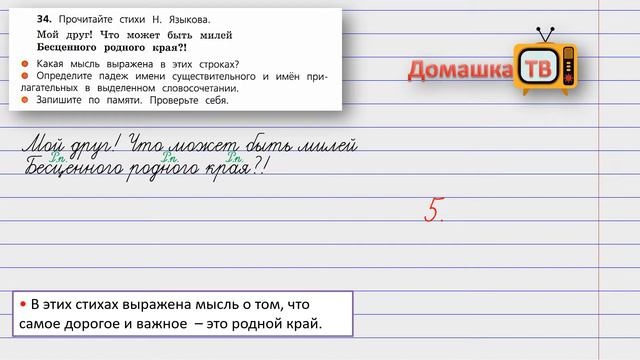 34. Прочитайте стихи Н. Языкова.
Мой друг! Что может быть милей
Бесценного родного края?!
● Какая мысль выражена в этих строках?
● Определите падеж имени существительного и имён при-
лагательных в выделенном словосочетании.
● Запишите по памяти. Проверьте себя.
Домашка ТВ
Мой друг! Что может быть милей
Р.п. Р.п. Р.п.
Бесценного родного края?!
5.
• В этих стихах выражена мысль о том, что
самое дорогое и важное – это родной край.